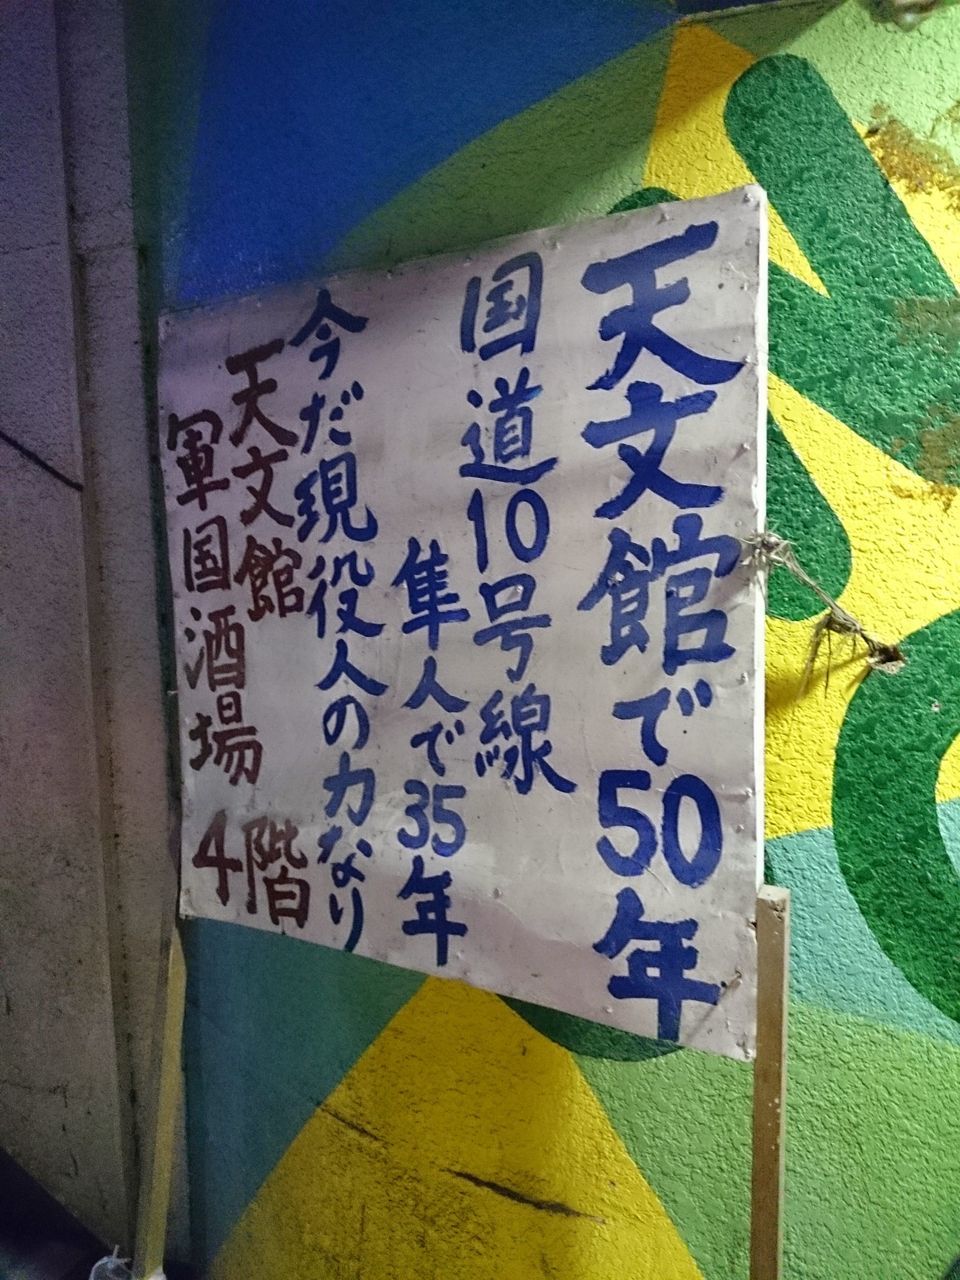 天文館で50年
国道10号線
隼人で35年
今だ現役人の力なり
天文館
軍国酒場 4階